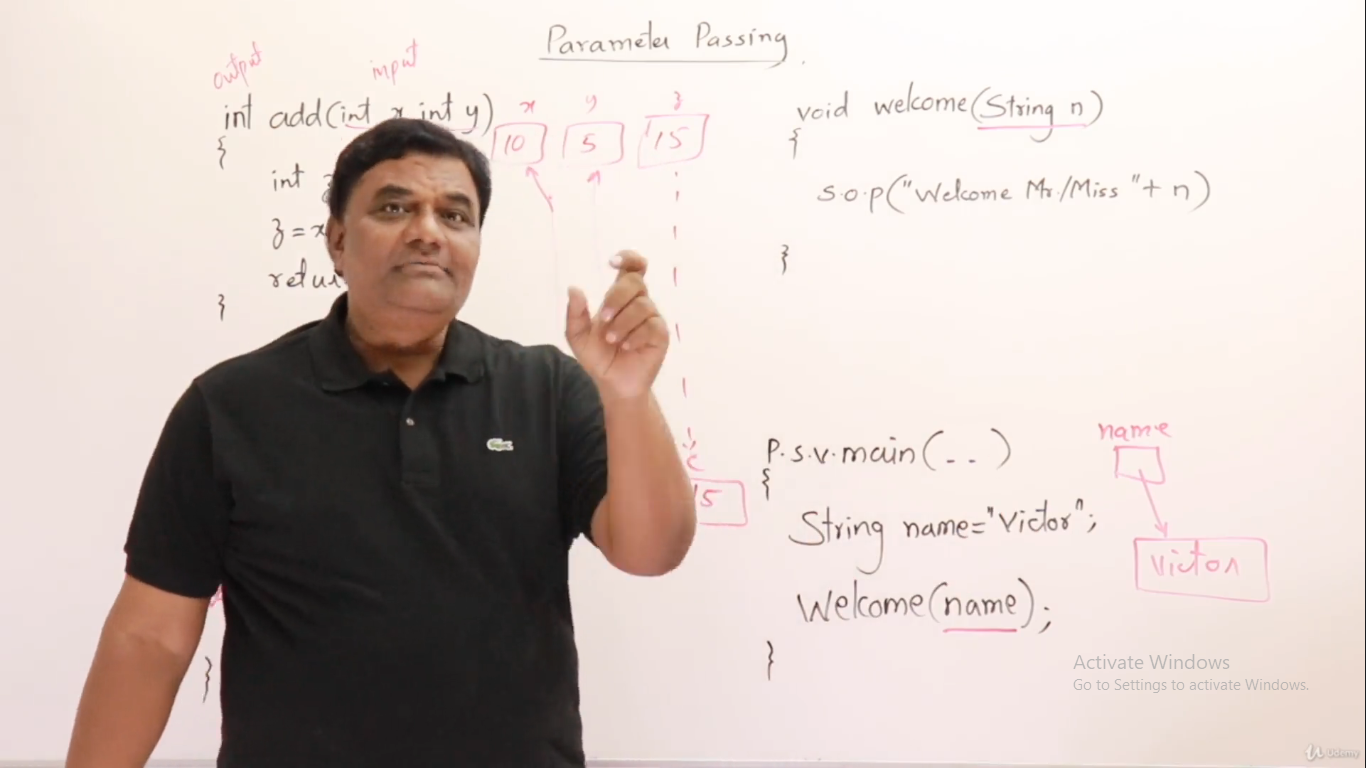 Parameter Passing
output
input
int add(int x int y)
x y z
10 5 15
{
int z
z=x
retu
}
c
15
}
void welcome(String n)
{
s.o.p("Welcome Mr./Miss "+ n)
}
P.S.V.main(.. )
{
String name="Victor";
Welcome(name);
}
name
Victor
Activate Windows
Go to Settings to activate Windows.
Udemy